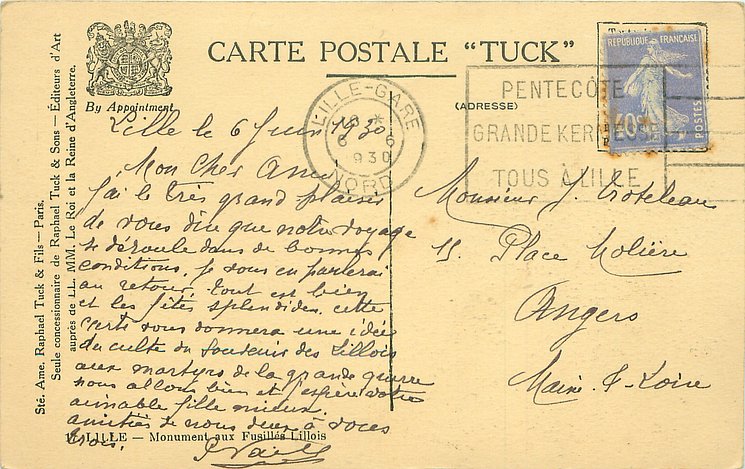 CARTE POSTALE “TUCK”
By Appointment
(ADRESSE)
Sté. Ame. Raphael Tuck & Fils — Paris.
Seule concessionnaire de Raphael Tuck & Sons — Éditeurs d'Art
auprès de LL. MM. Le Roi et la Reine d'Angleterre.
LILLE-GARE
6 6
1930
NORD
PENTECÔTE
GRANDE KERMESSE
TOUS À LILLE
REPUBLIQUE FRANÇAISE
40c
POSTES
Lille le 6 Juin 1930
Mon cher Ami
J'ai le très grand plaisir
de vous dire que notre voyage
se déroule dans de bonnes
conditions, je vous en parlerai
au retour. tout est bien
et les fêtes splendides. cette
carte vous donnera une idée
du culte du souvenir des Lillois
aux martyrs de la grande guerre
nous allons bien et j'espère votre
aimable fille mieux.
amitiés de nous deux à vous
trois.
LILLE — Monument aux Fusillés Lillois
Monsieur J.
15 Place Molière
Angers
Maine & Loire